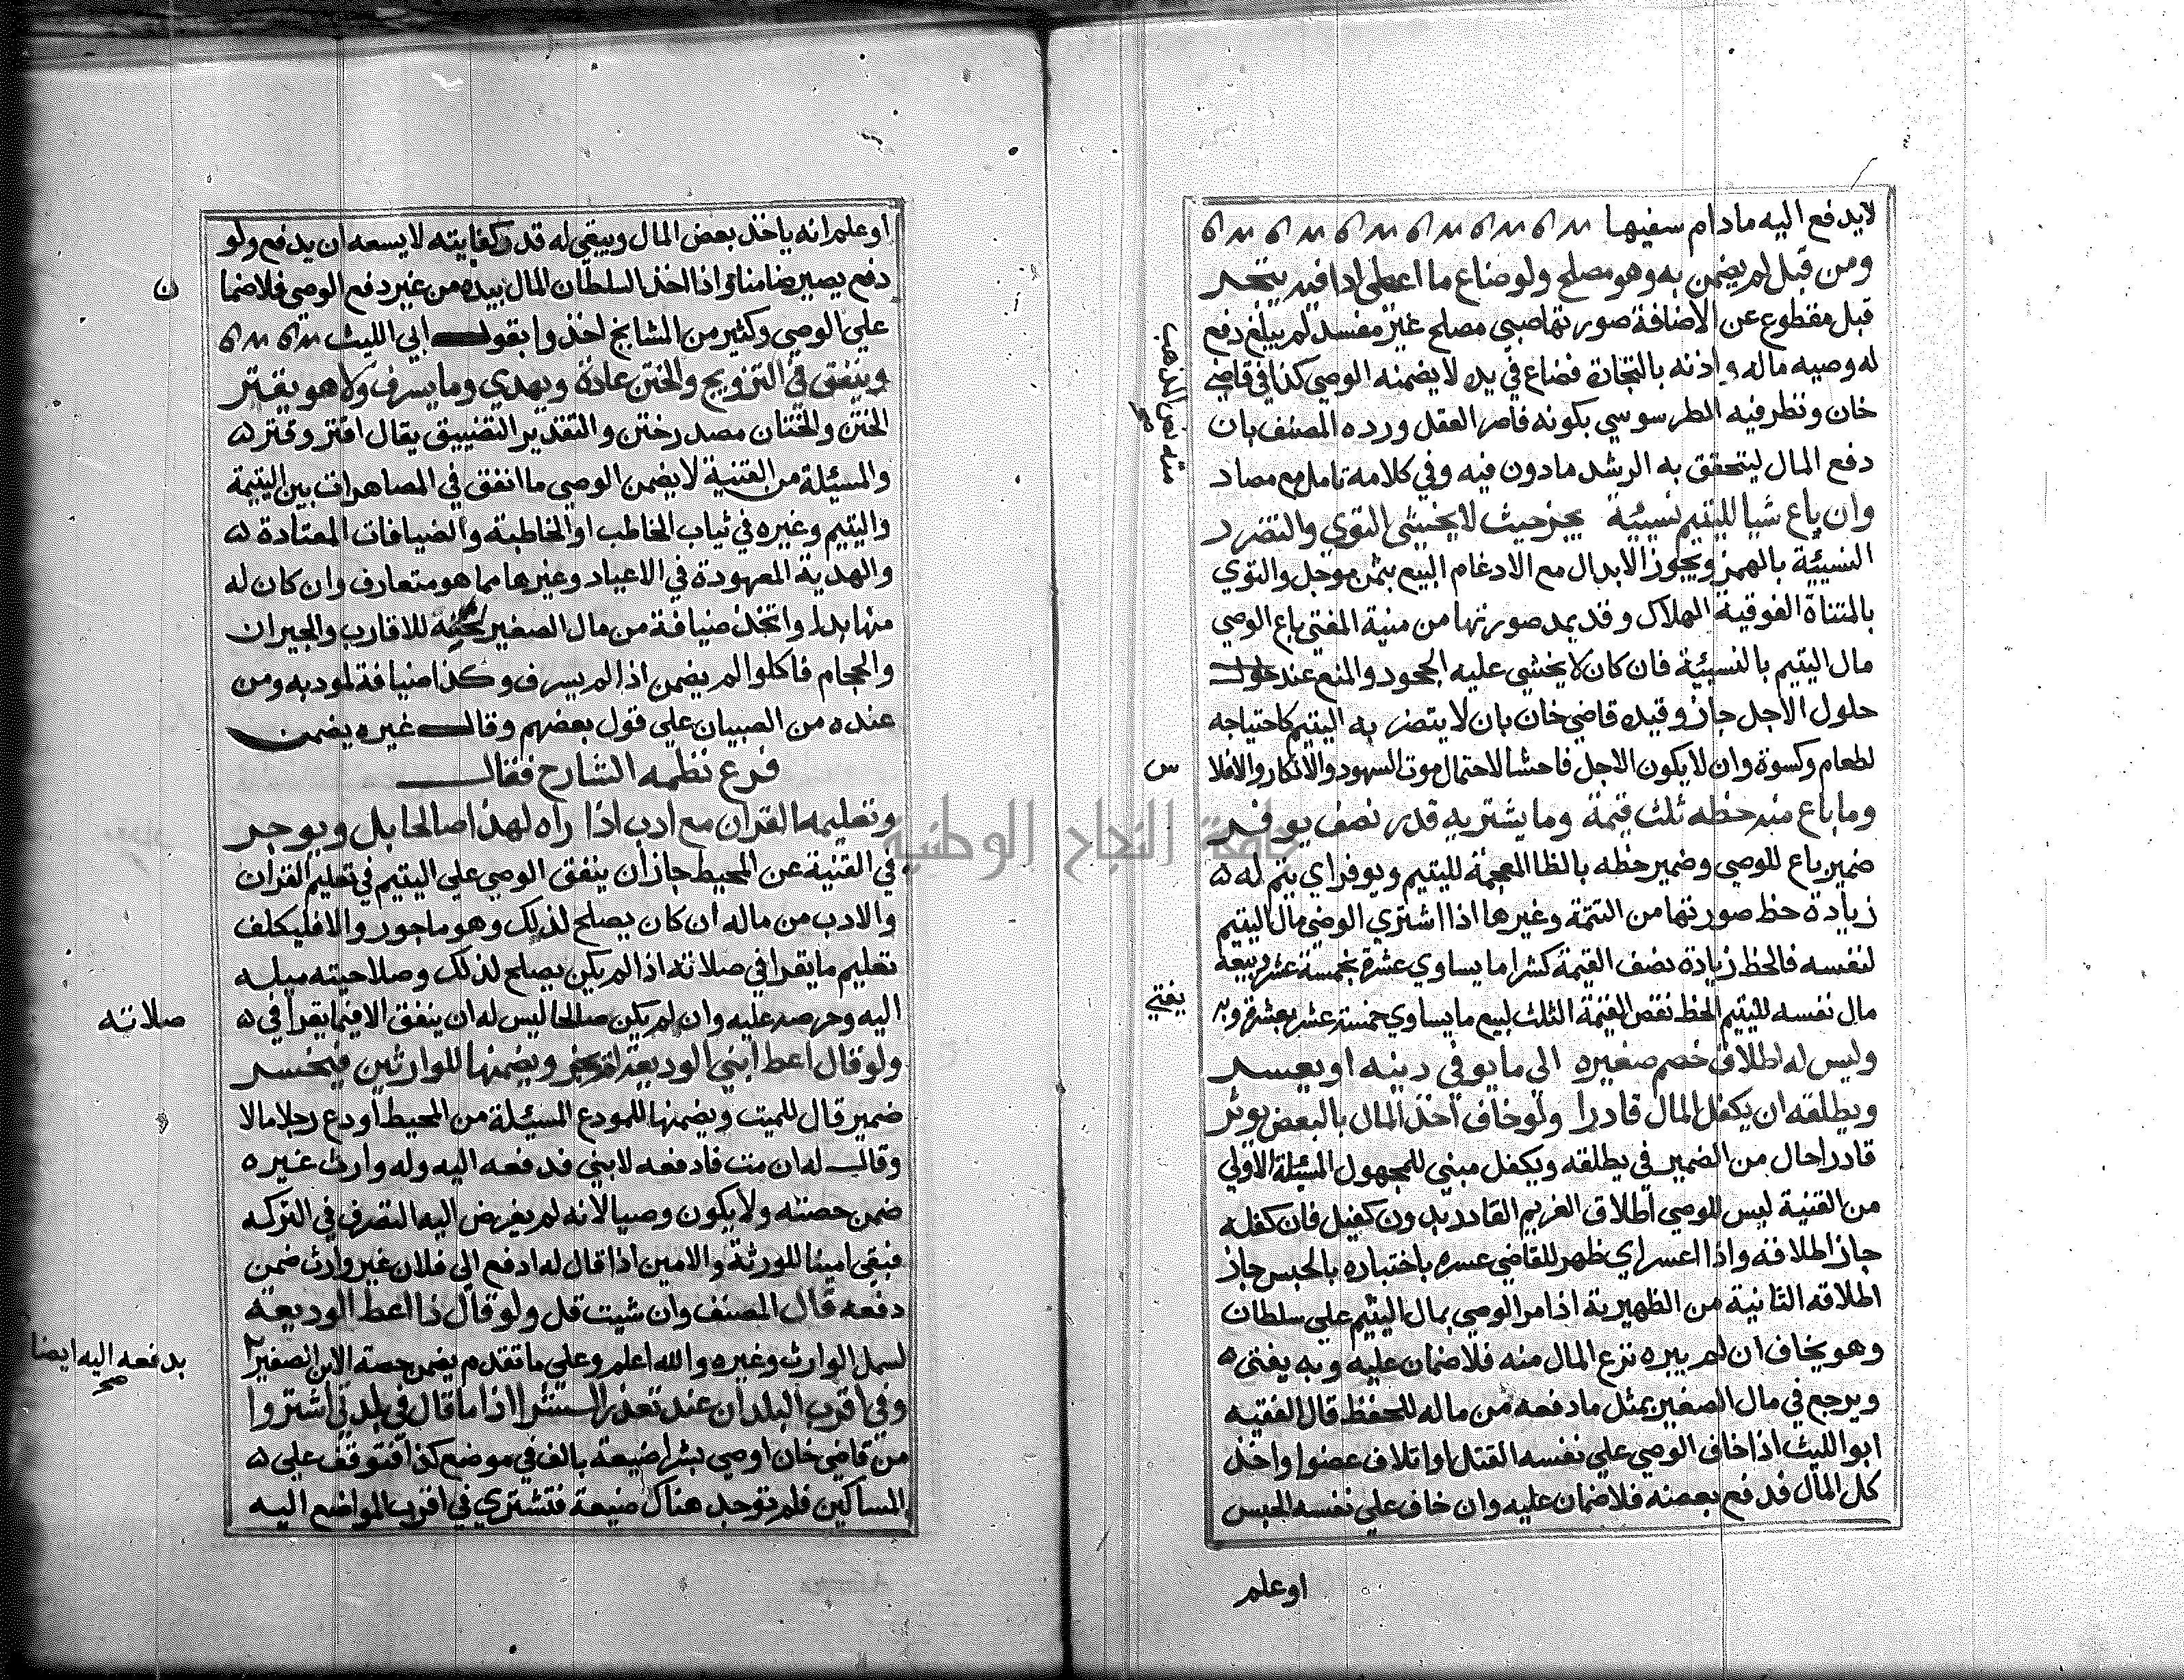 لا يدفع اليه مادام سفيها
ومن قبل لم يضمن به وهو مصلح ولو ضاع ما اعطى اذا فيه يتجر
قبل مقطوع عن الاضافة صورتها صبي مصلح غير مفسد لم يبلغ دفع
له وصيه ماله واذنه بالتجارة فضاع في يده لا يضمنه الوصي كذا في قاضي
خان ونظر فيه الطرسوسي بكونه قاصر العقل ورده المصنف بان
دفع المال ليتحقق به الرشد مادون فيه وفي كلامه تامل مع مصاد
وان باع شيا لليتيم نسيئة يجز حيث لا يخشى التوي والتضرر
النسيئة بالهمز ويجوز الابدال مع الادغام البيع بثمن موجل والتوي
بالمتناة الفوقية الهلاك وقد يمد صورتها من منية المفتي باع الوصي
مال اليتيم بالنسيئة فان كان لا يخشى عليه الجحود والمنع عند
حلول الاجل جاز وقيده قاضي خان بان لا يتضر به اليتيم كاحتياجه
لطعام وكسوة وان لا يكون الاجل فاحشا لاحتمال موت الشهود والانكار والافلا
س
وما باع منه حظه ثلث قيمة وما يشتريه قدر نصف يوفر
ضمير باع للوصي وضمير حظه بالظا المعجمة لليتيم ويوفر اي يتم له
زيادة حظ صورتها من التتمة وغيرها اذا اشتري الوصي مال اليتيم
لنفسه فالحظ زيادة نصف القيمة كشرا ما يساوي عشرة بخمسة عشر وبيعه
مال نفسه لليتيم الحظ نقص القيمة الثلث لبيع ما يساوي خمسة عشر بعشرة وبه
يفتي
وليس له اطلاق خصم صغيره الى ما يوفي دينه او يعسر
ويطلقه ان يكفل المال قادرا ولو خاف اخذ المال بالبعض يوثر
قادرا حال من الضمير في يطلقه ويكفل مبني للمجهول المسئلة الاولي
من القنية ليس للوصي اطلاق الغريم القادر بدون كفيل فان كفله
جاز اطلاقه واذا اعسر اي ظهر للقاضي عسره باختباره بالحبس جاز
اطلاقه الثانية من الظهيرية اذا مر الوصي بمال اليتيم علي سلطان
وهو يخاف ان لم يبره نزع المال منه فلا ضمان عليه وبه يفتى
ويرجع في مال الصغير بمثل ما دفعه من ماله للحفظ قال الفقيه
ابو الليث اذا خاف الوصي علي نفسه القتل او اتلاف عضو او اخذ
كل المال فدفع بعضه فلا ضمان عليه وان خاف علي نفسه الحبس
او علم
او علم انه ياخذ بعض المال ويبقي له قدر كفايته لا يسعه ان يدفع ولو
دفع يصير ضامنا واذا اخذ السلطان المال بيده من غير دفع الوصي فلا ضما
ن
علي الوصي وكثير من المشايخ اخذوا بقول ابي الليث
وينفق في التزويج والختن عادة ويهدي وما يسرف ولا هو يقتر
الختن والختان مصدر ختن والتقدير التضييق يقال اقتر وقتر
والمسئلة من القنية لا يضمن الوصي ما انفق في المصاهرات بين اليتيمة
واليتيم وغيره في ثياب الخاطب او الخاطبة والضيافات المعتادة
والهدية المعهودة في الاعياد وغيرها مما هو متعارف وان كان له
منها بد او اتخذ ضيافة من مال الصغير لختنه للاقارب والجيران
والحجام فاكلوا لم يضمن اذا لم يسرف وكذا ضيافة لمودبه ومن
عنده من الصبيان علي قول بعضهم وقال غيره يضمن
فرع نظمه الشارح فقال
وتعليمه القران مع ادب اذا راه لهذا صالحا بل ويوجر
في القنية عن المحيط جاز ان ينفق الوصي علي اليتيم في تعليم القران
والادب من ماله ان كان يصلح لذلك وهو ماجور والا فليكلف
تعليم ما يقرا في صلاته اذا لم يكن يصلح لذلك وصلاحيته ميله
اليه وحرصه عليه وان لم يكن صالحا ليس له ان ينفق الا فيما يقرا في
صلاته
ولو قال اعط ابني الوديعة لم يجز ويضمنها للوارثين فيخسر
ضمير قال للميت ويضمنها للمودع المسئلة من المحيط اودع رجلا مالا
وقال له ان مت فادفعه لابني فدفعه اليه وله وارث غيره
ضمن حصته ولا يكون وصيا لانه لم يفوض اليه التصرف في التركه
فبقي امينا للورثة والامين اذا قال له ادفع الي فلان غير وارث ضمن
دفعه قال المصنف وان شيت قل ولو قال ذا اعط الوديعة
لسمل الوارث وغيره والله اعلم وعلي ما تقدم يضمن حصة الابن الصغير
بدفعه اليه ايضا
صح
وفي اقرب البلدان عند تعذر الشرا اذا ما قال في بلدتي اشتروا
من قاضي خان اوصي بشرا ضيعة بالف في موضع كذا فتوقف علي
المساكين فلم توجد هناك ضيعة فتشتري في اقرب المواضع اليه
جامعة النجاح الوطنية